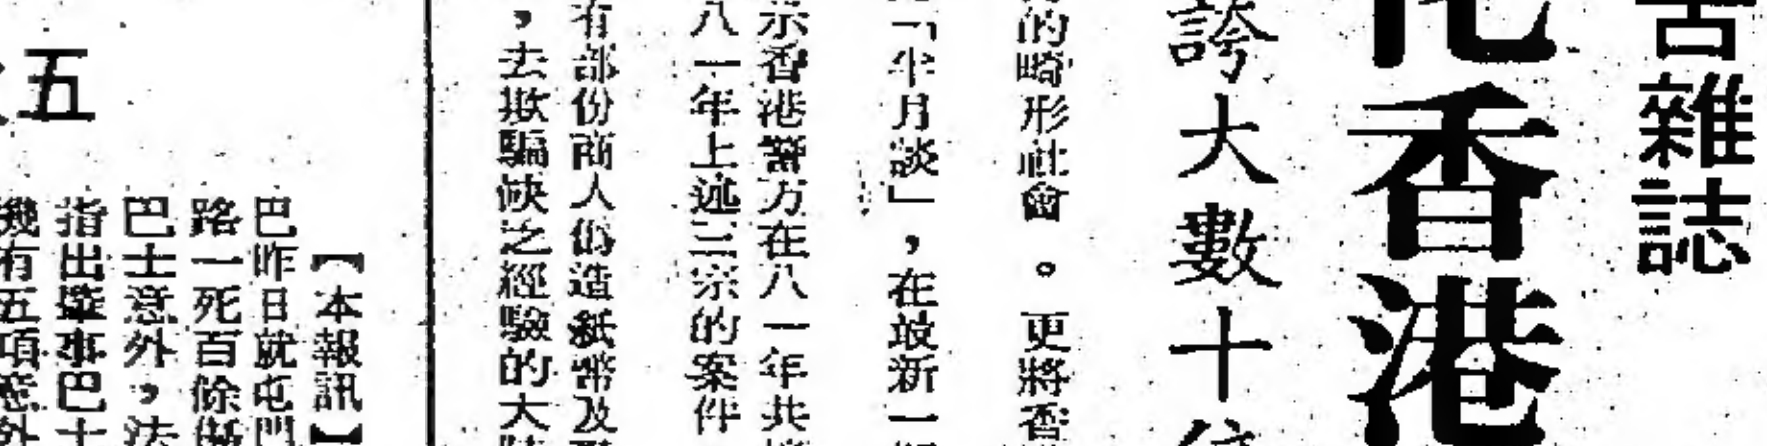 雜誌
香港
誇大數十
的畸形社會。更將香
「半月談」，在最新一
示香港警方在八一年共
八一年上述三宗的案件
有部份商人僞造紙幣及
，去欺騙缺乏經驗的大
五
【本報訊】
巴昨日就屯門
路一死百餘傷
巴士意外，法
指出肇事巴士
幾有五項意外